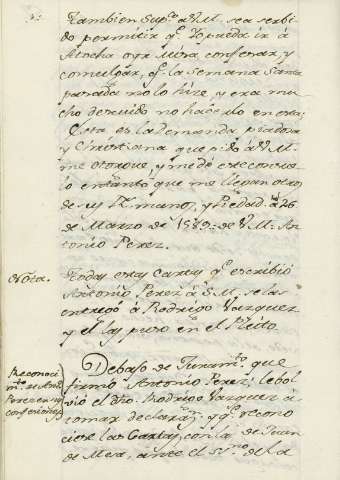 Tambien Sup.co a V.M. sea serbi-
do permitir q.e Yo pueda ir á
Atocha oyr Misa confesar, y
comulgar, q.e la semana Santa
pasada no lo hize, y era mu-
cho descuido no hacerlo en esta;
Esta es la Demanda piadosa
y Christiana que pido á V.M.
me otorgue, y me dé este consue-
lo entanto, que me llegan otros
de su R.l mano, y Piedad. á 26
de Marzo de 1589. de V.M. An-
tonio Perez.
Nota.
Todas estas Cartas q.e escribió
Antonio Perez á S.M. se las
entregó á Rodrigo Vazquez
y el las puso en el Pleito.
Reconoci-
m.to de Ant.o
Perez en sus
confesiones
Debajo de Juram.to que
firmó Antonio Perez, le bol-
vió el dho. Rodrigo Vazquez á
tomar declaraz.n y q.e recono-
ciese las Cartas, con la de Juan
de Mesa, ante el SS.no de la